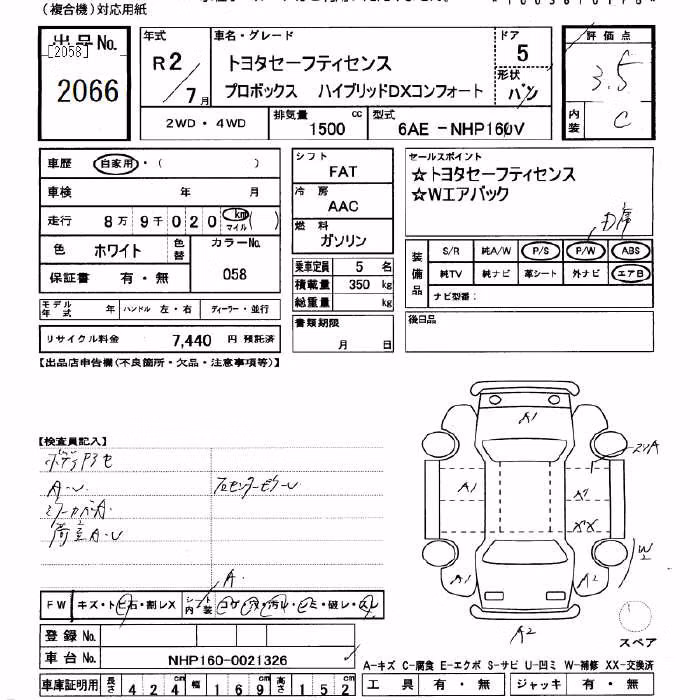 (複合機)対応用紙
出品No.
[2058]
2066
年式
R2/7月
車名・グレード
トヨタセーフティセンス
プロボックス ハイブリッドDXコンフォート
ドア
5
形状
バン
評価点
3.5
内装
C
2WD・4WD
排気量 1500 cc
型式 6AE-NHP160V
車歴 自家用・( )
車検 年 月
走行 8万9千020 km マイル( )
色 ホワイト 色替
カラーNo.
058
保証書 有・無
モデル年式 年 ハンドル 左・右 ディーラー・並行
リサイクル料金 7,440 円 預託済
シフト
FAT
冷房
AAC
燃料
ガソリン
乗車定員 5 名
積載量 350 kg
総重量 kg
書類期限
月 日
セールスポイント
☆トヨタセーフティセンス
☆Wエアバック
装備品
S/R 純A/W P/S P/W ABS
純TV 純ナビ 革シート 外ナビ エアB
ナビ型番:
後日品
【出品店申告欄(不良箇所・欠品・注意事項等)】
【検査員記入】
A-U
A1
A1
A1
A2
A2
XX
W2
A
FW キズ・トビ石・割レX
シート内装 コゲ・穴・汚レ・シミ・破レ・スレ
登録No.
車台No. NHP160-0021326
車庫証明用 長さ 424cm 幅 169cm 高さ 152cm
スペア
A-キズ C-腐食 E-エクボ S-サビ U-凹ミ W-補修 XX-交換済
工具 有・無 ジャッキ 有・無